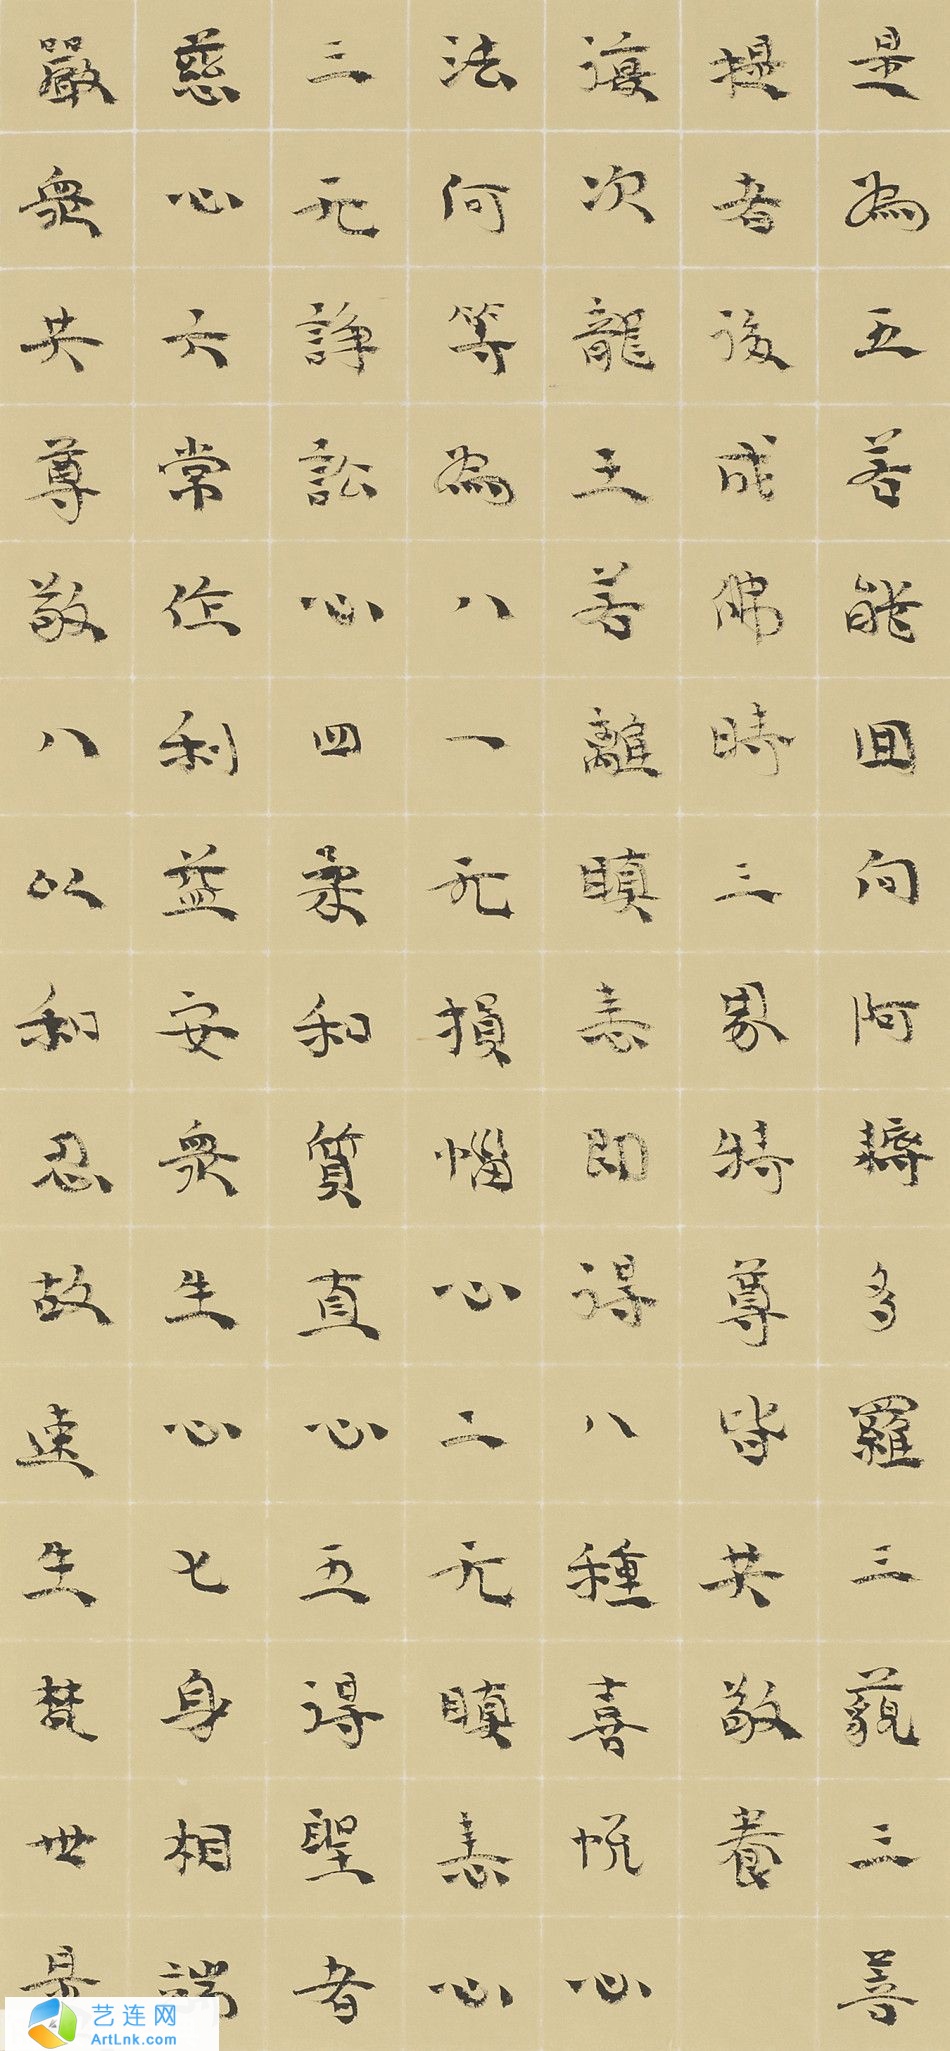 是為五若能回向阿耨多羅三藐三菩
提者後成佛時三界特尊皆共敬養
復次龍王若離瞋恚即得八種喜悅心
法何等為八一无損惱心二无瞋恚心
三无諍訟心四柔和質直心五得聖者
慈心六常作利益安衆生心七身相端
嚴衆共尊敬八以和忍故速生梵世是
艺连网
ArtLnk.com